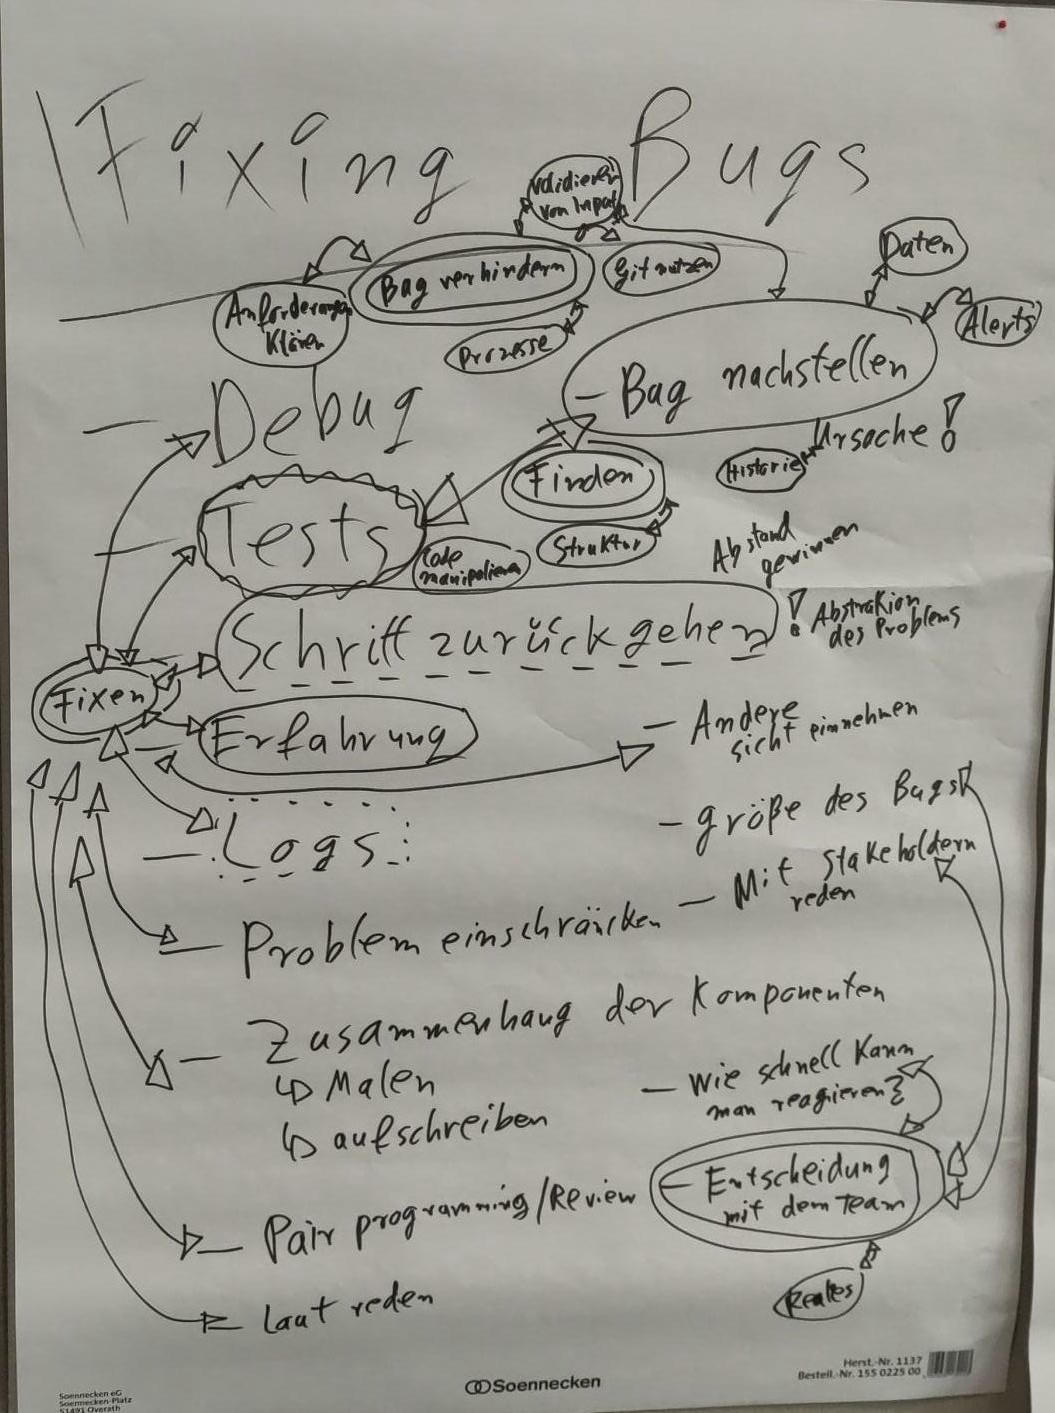 Fixing Bugs
Validieren
von Input
Daten
Bug verhindern
Git nutzen
Anforderungen
Klären
Alerts
Prozesse
- Bug nachstellen
- Debug
Ursache!
Historie
Finden
- Tests
Struktur
Code
manipulieren
Abstand
gewinnen
Schritt zurück gehen
! Abstraktion
des Problems
Fixen
- Erfahrung
- Andere
sicht einnehmen
- Logs
- größe des Bugs
- Mit stakeholdern
reden
- Problem einschräncken
- Zusammenhang der Komponenten
↳ Malen
↳ aufschreiben
- Wie schnell kann
man reagieren?
- Entscheidung
mit dem Team
- Pair programming/Review
- Laut reden
Soennecken eG
Soennecken-Platz
51491 Overath
Soennecken
Herst.-Nr. 1137
Bestell.-Nr. 155 0225 00